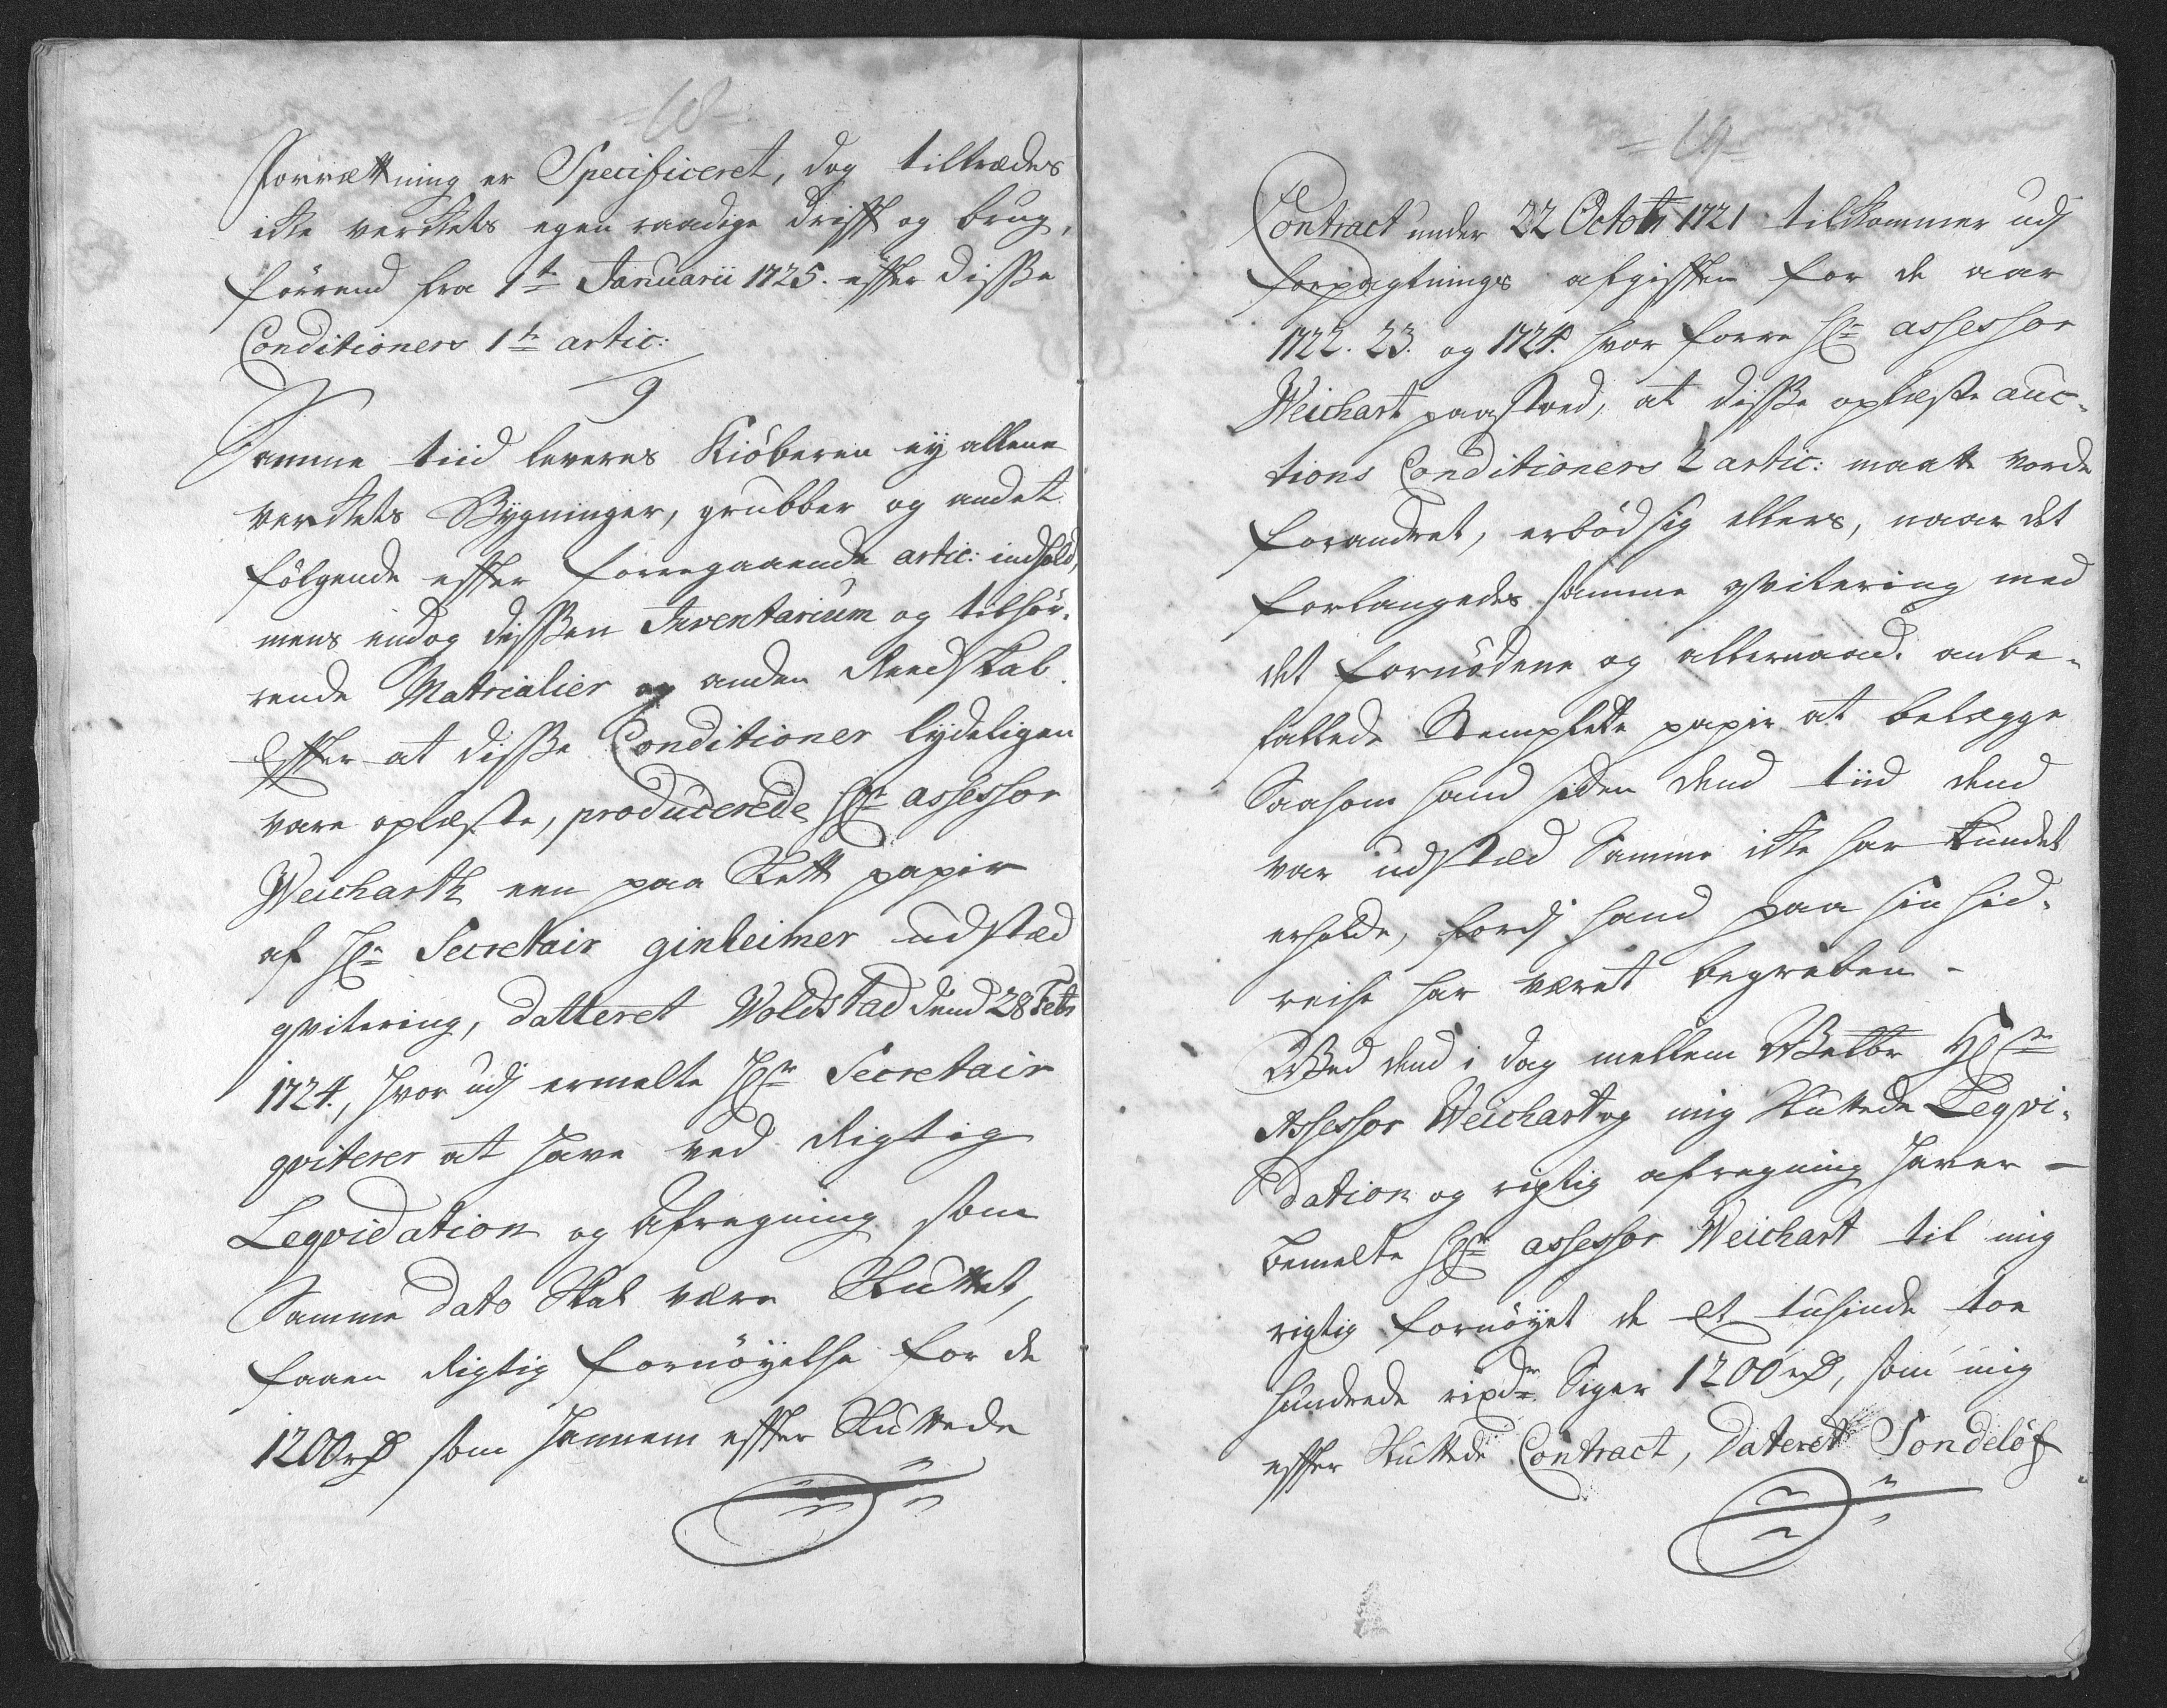 -68-
forretning er Specificeret, dog tiltrædes
ikke verckets egen raadige drifft og brug,
förrend fra 1te Januarii 1725. effter disse
Conditioners 1te artic:
9
Samme tiid leveres Kiöberen ey allene
verckets Bygninger, grubber og andet
fölgende effter forregaaende artic: indhold,
mens endog dissen Inventarium og tilhör-
rende Matrialier og anden Reedskab.
Effter at disse Conditioner lydeligen
vare oplæste, producerede Hr assessor
Weicharth een paa Slett papir
af Hr Secretair ginheimer udstæd
qvitering, datteret Woldstad dend 28 Febr
1724., hvor udj ermelte Hr Secretair
qviterer at have ved Rigtig
Leqvidation og Afregning som
Samme dato Skal være Sluttet,
faaen Rigtig fornöyelse for de
1200 rd som hannem effter Sluttede
-69-
Contract under 22 Octobr 1721 tilkommer udj
forpagtnings afgifften for de aar
1722. 23. og 1724. hvor forre Hr assessor
Weichart paastoed, at disse oplæste auc-
tions Conditioners 2 artic: maatte vorde
forandret, erböd sig ellers, naar det
forlangedes samme qvitering med
det fornödene og allernaad. anbe-
fallede Stemplette papir at belegge
Saasom hand siden dend tiid dend
var udstæd Samme icke har kundet
erholde, fordj hand paa sin hid-
reise har været begreben -
Wed dend i dag mellem Welbr Hr
Assessor Weichart og mig Sluttede Leqvi-
dation og rigtig afregning haver -
bemelte Hr assessor Weichart til mig
rigtig fornöyet de et tusinde toe
hundrede rixdr Siger 1200 rd, som mig
effter Sluttede Contract, Dateret Sondelöf